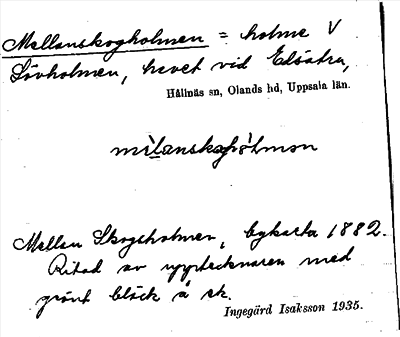 Mellanskogholmen = holme V
Lövholmen, havet vid Elsätra,
Hållnäs sn, Olands hd, Uppsala län.
Mellan Skogsholmen, bykarta 1882.
Ritad av upptecknaren med
grönt bläck å sk.
Ingegärd Isaksson 1935.